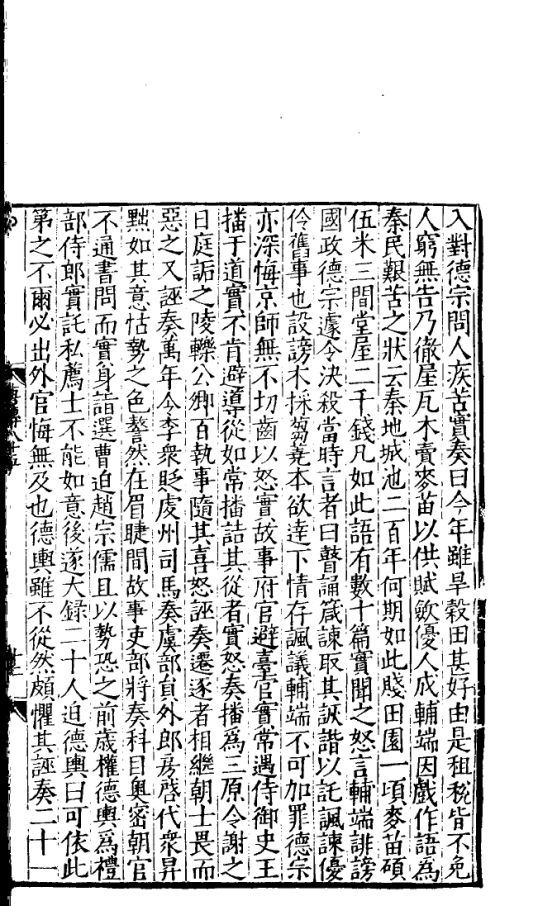 入對德宗問人疾苦實奏曰今年雖旱穀田甚好由是租稅皆不免
人窮無告乃徹屋瓦木賣麥苗以供賦斂優人成輔端因戲作語爲
秦民艱苦之狀云秦地城池二百年何期如此賤田園一頃麥苗碩
伍米三間堂屋二千錢凡如此語有數十篇實聞之怒言輔端誹謗
國政德宗遽令決殺當時言者曰瞽誦箴諫取其詼諧以託諷諫優
伶舊事也設謗木採蒭蕘本欲達下情存諷議輔端不可加罪德宗
亦深悔京師無不切齒以怒實故事府官避臺官實常遇侍御史王
播于道實不肯避導從如常播詰其從者實怒奏播爲三原令謝之
日庭詬之陵轢公卿百執事隨其喜怒誣奏遷逐者相繼朝士畏而
惡之又誣奏萬年令李衆貶虔州司馬奏虞部負外郎房啓代衆昇
黜如其意怙勢之色謷然在眉睫間故事吏部將奏科目奧密朝官
不通書問而實身詣選曹迫趙宗儒且以勢恐之前歲權德輿爲禮
部侍郎實託私薦士不能如意後遂大錄二十人迫德輿曰可依此
第之不爾必出外官悔無及也德輿雖不從然頗懼其誣奏二十一